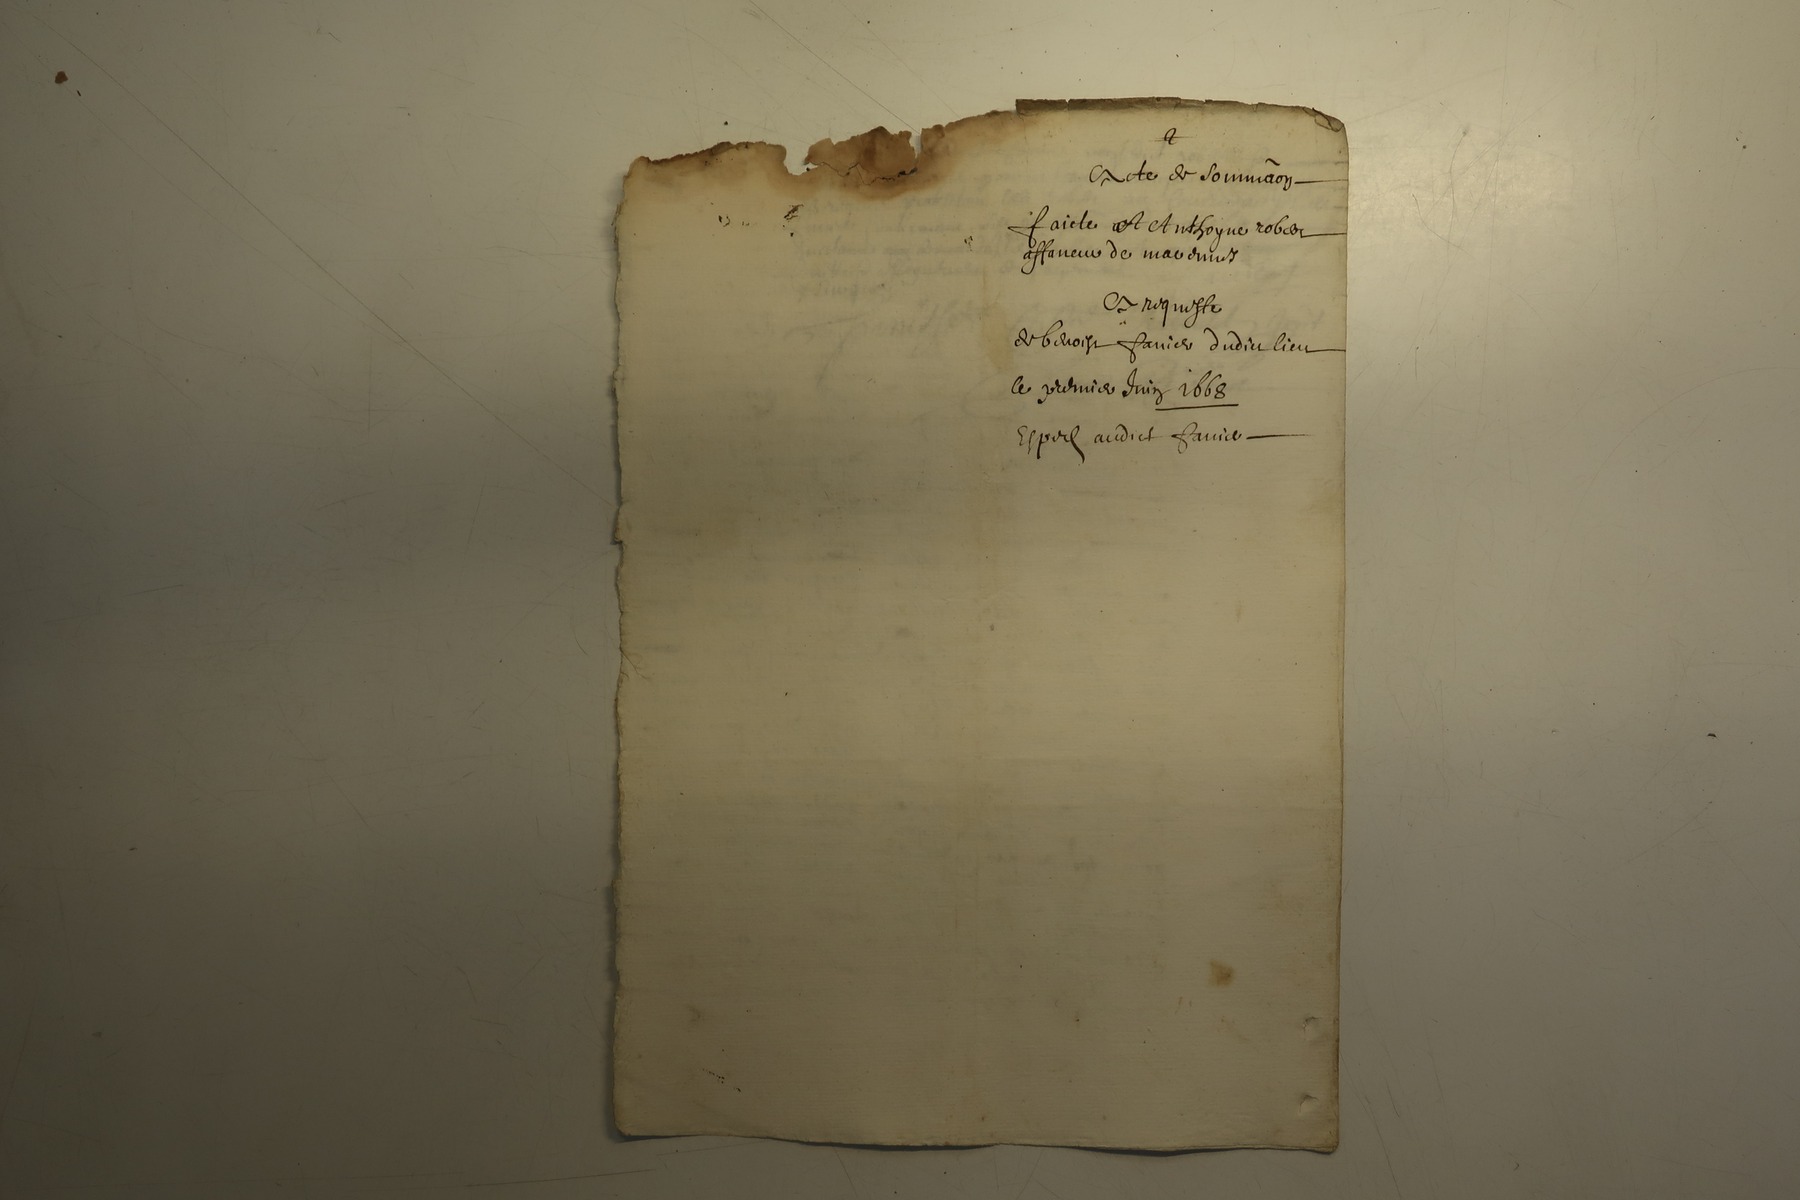 Acte de Sommaõn
faicte A Anthoyne robert
affaneur de
A requeste
de benoist Janier dudit lieu
le premier Juin 1668
Exped audict Janier